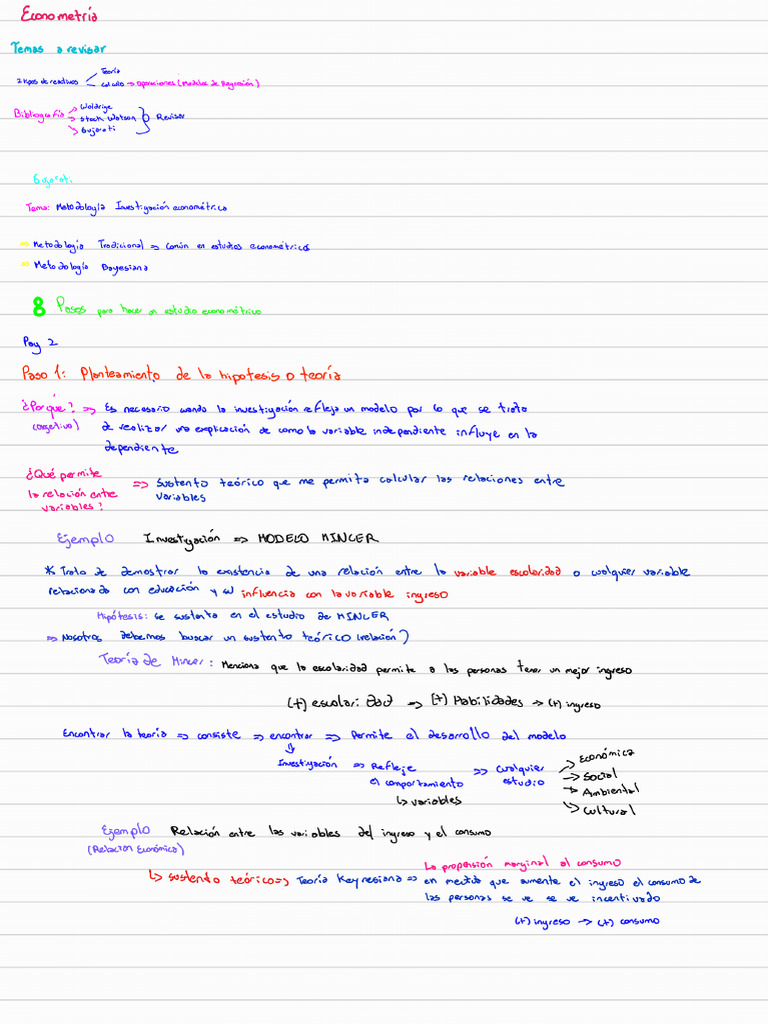 Econometría
Temas a revisar
2 tipos de reactivos
Teoría
calculo → operaciones (Modelos de Regresión)
Bibliografía
Woldrige
Stock Watson
Gujarati
Revisar
Gujarati
Tema: Metodología Investigación econométrica
⇒ Metodología Tradicional ⇒ Común en estudios econométricos
⇒ Metodología Bayesiana
8 Pasos para hacer un estudio econométrico
Pag 2
Paso 1: Planteamiento de la hipótesis o teoría
¿Por qué? ⇒ Es necesario cuando la investigación refleja un modelo por lo que se trata
(objetivo) de realizar una explicación de como la variable independiente influye en la
dependiente
¿Qué permite
la relación entre
variables?
⇒ Sustento teórico que me permita calcular las relaciones entre
variables
Ejemplo Investigación ⇒ MODELO MINCER
* Trata de demostrar la existencia de una relación entre la variable escolaridad o cualquier variable
relacionada con educación y su influencia con la variable ingreso
Hipótesis: se sustenta en el estudio de MINCER
⇒ Nosotros debemos buscar un sustento teórico (relación)
Teoría de Mincer: Menciona que la escolaridad permite a las personas tener un mejor ingreso
(+) escolaridad ⇒ (+) Habilidades → (+) ingreso
Encontrar la teoría ⇒ consiste ⇒ encontrar ⇒ Permite el desarrollo del modelo
⇓
Investigación ⇒ Refleje
el comportamiento
↳ variables
⇒ Cualquier
estudio
→ Económica
→ Social
→ Ambiental
→ Cultural
Ejemplo Relación entre las variables del ingreso y el consumo
(Relación Económica)
La propensión marginal al consumo
↳ sustento teórico ⇒ Teoría Keynesiana ⇒ en medida que aumente el ingreso el consumo de
las personas se ve se ve incentivado
(+) ingreso → (+) consumo